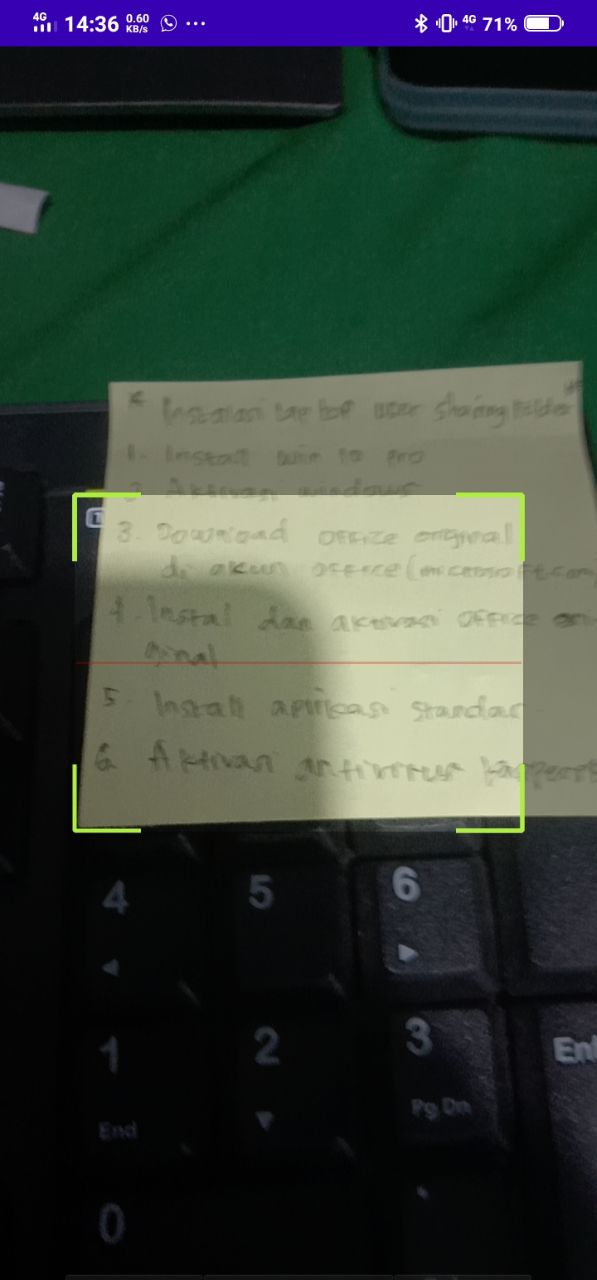 14:36 0.60 KB/s 4G 71%
* Instalasi laptop user sharing folder
1. Install win 10 pro
2 Aktivasi windows
3. Download office original
di akun office (microsoft.com)
4. Instal dan aktivasi office ori-
ginal
5. Install aplikasi standar
6 Aktivasi antivirus
4 5 6
1 2 3
End Pg Dn
0